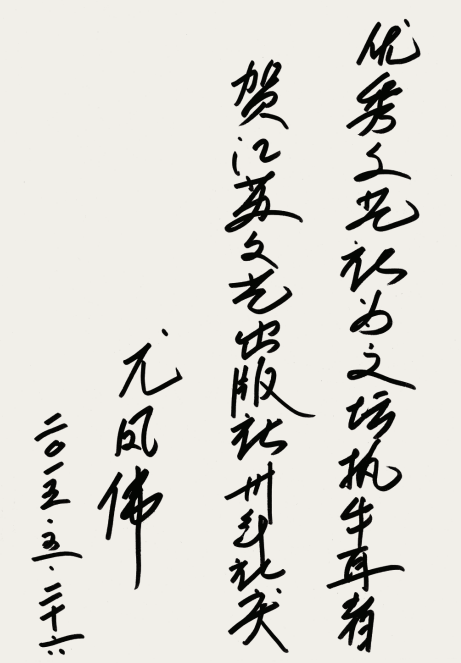 优秀文艺社为文坛执牛耳者
贺江苏文艺出版社卅年社庆
尤凤伟
二〇一五·五·二十六